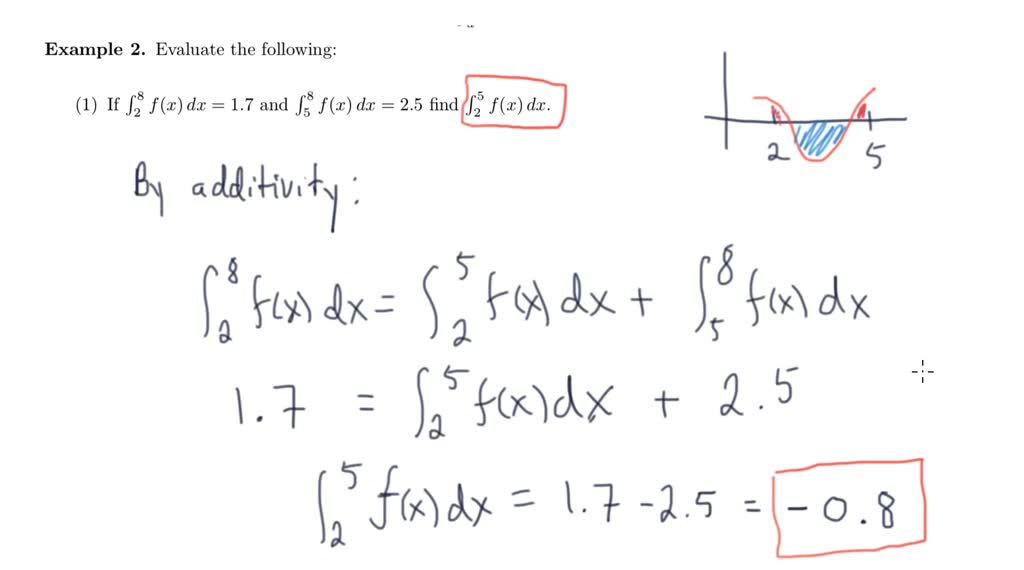 Example 2. Evaluate the following:
(1) If ∫₂⁸ f(x) dx = 1.7 and ∫₅⁸ f(x) dx = 2.5 find ∫₂⁵ f(x) dx.
2 5
By additivity:
∫₂⁸ f(x) dx = ∫₂⁵ f(x) dx + ∫₅⁸ f(x) dx
1.7 = ∫₂⁵ f(x) dx + 2.5
∫₂⁵ f(x) dx = 1.7 - 2.5 = - 0.8